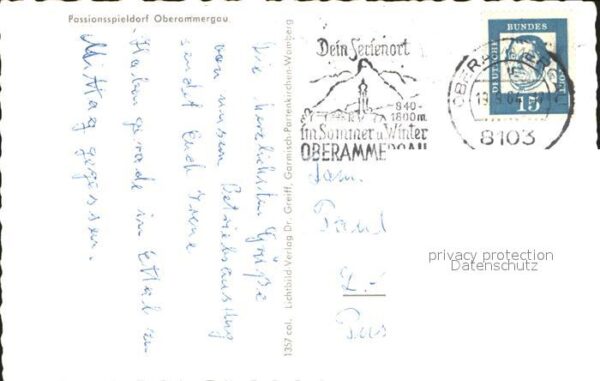 Passionsspieldorf Oberammergau
Die herzlichsten Grüße
von unsem Betriebsausflug
sendet Euch Irene
Haben gerade in Ettal zu
Mittag gegessen.
1357 col. Lichtbild-Verlag Dr. Greiff, Garmisch-Partenkirchen-Wamberg
Dein Ferienort
840-
1800m.
im Sommer u. Winter
OBERAMMERGAU
OBERAMMER
8103
DEUTSCHE BUNDESPOST
15
Fam.
Paul
privacy protection
Datenschutz